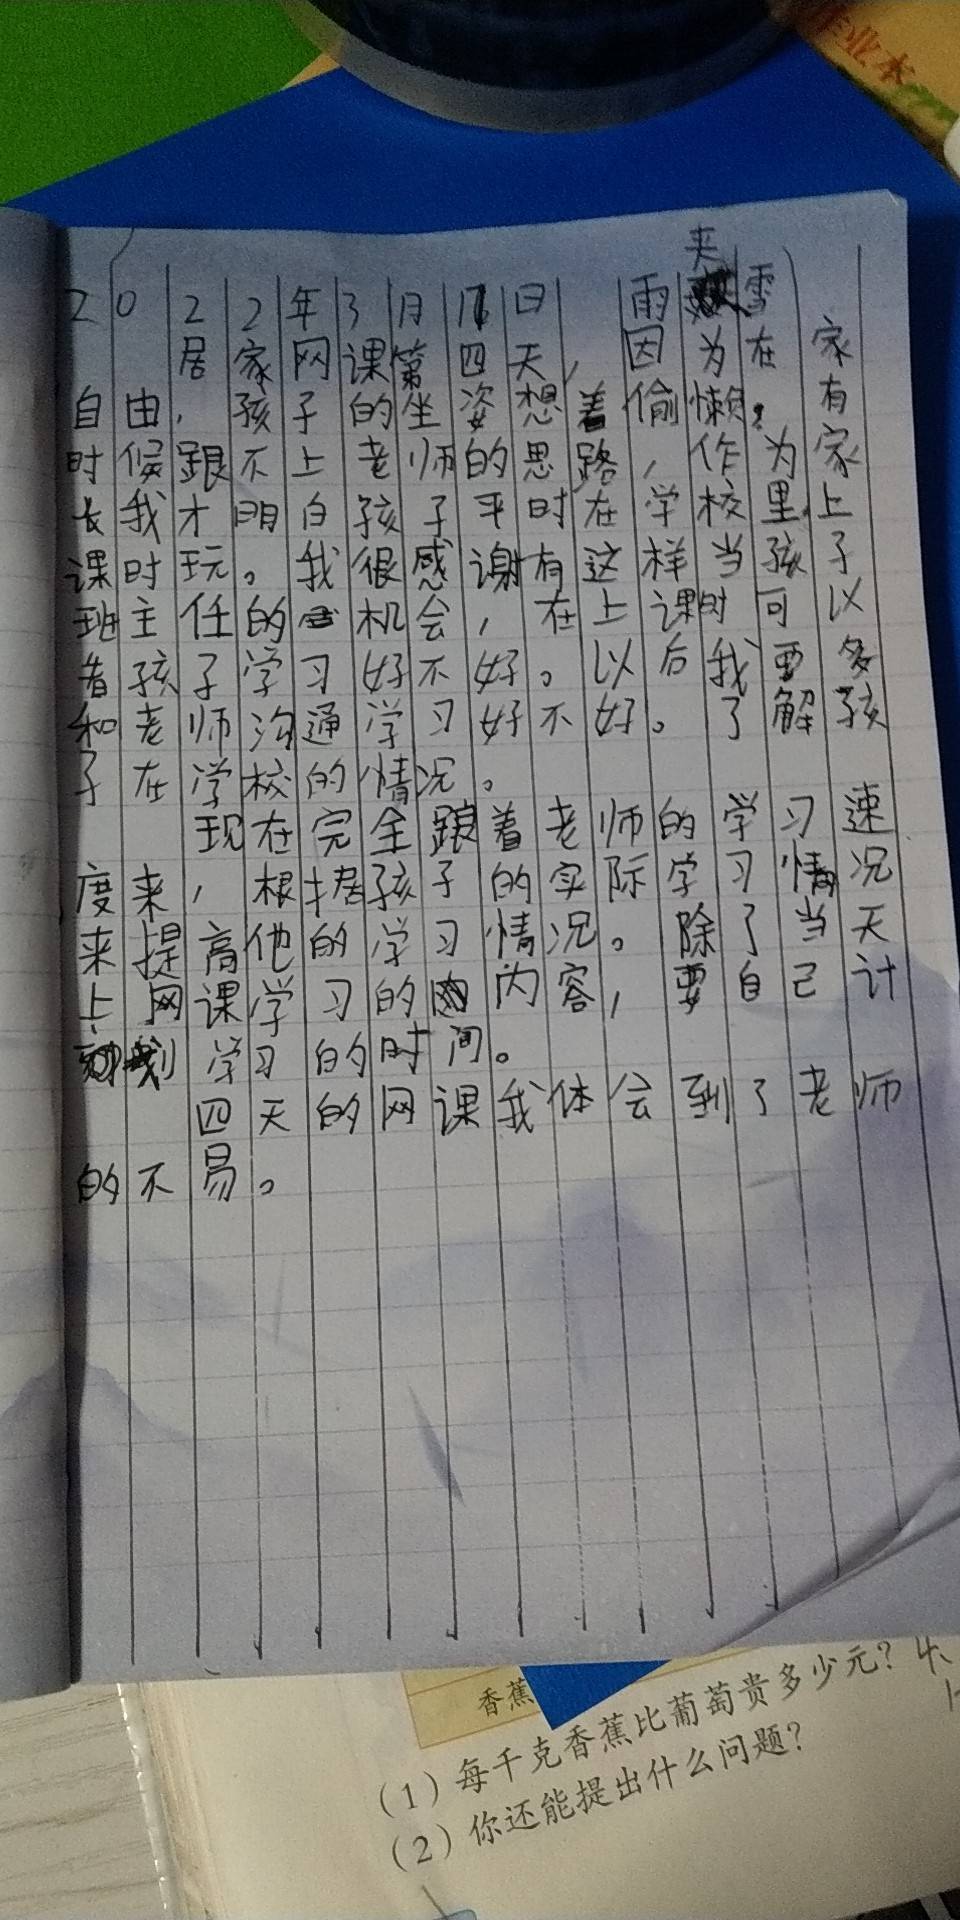 作业本
2022年3月17日 雨夹雪
居家网课第四天,因为在家
自由,孩子的坐姿想着偷懒。有
时候跟不上老师的思路,作为家
长我才明白孩子平时在学校里上
课时玩。我很感谢有这样当孩子
班主任的机会,在上课时可以
看孩子学习好不好。以后我要多
和老师沟通学习好不好。了解孩
子在学校的情况。
现在完全跟着老师的学习速
度来,根据孩子的实际学习情况
来提高他的学习情况。除了当天
上网课学习的内容,要自己计
划学习的时间。
四天的网课我体会到了老师
的不易。
香蕉
(1)每千克香蕉比葡萄贵多少元?
(2)你还能提出什么问题?